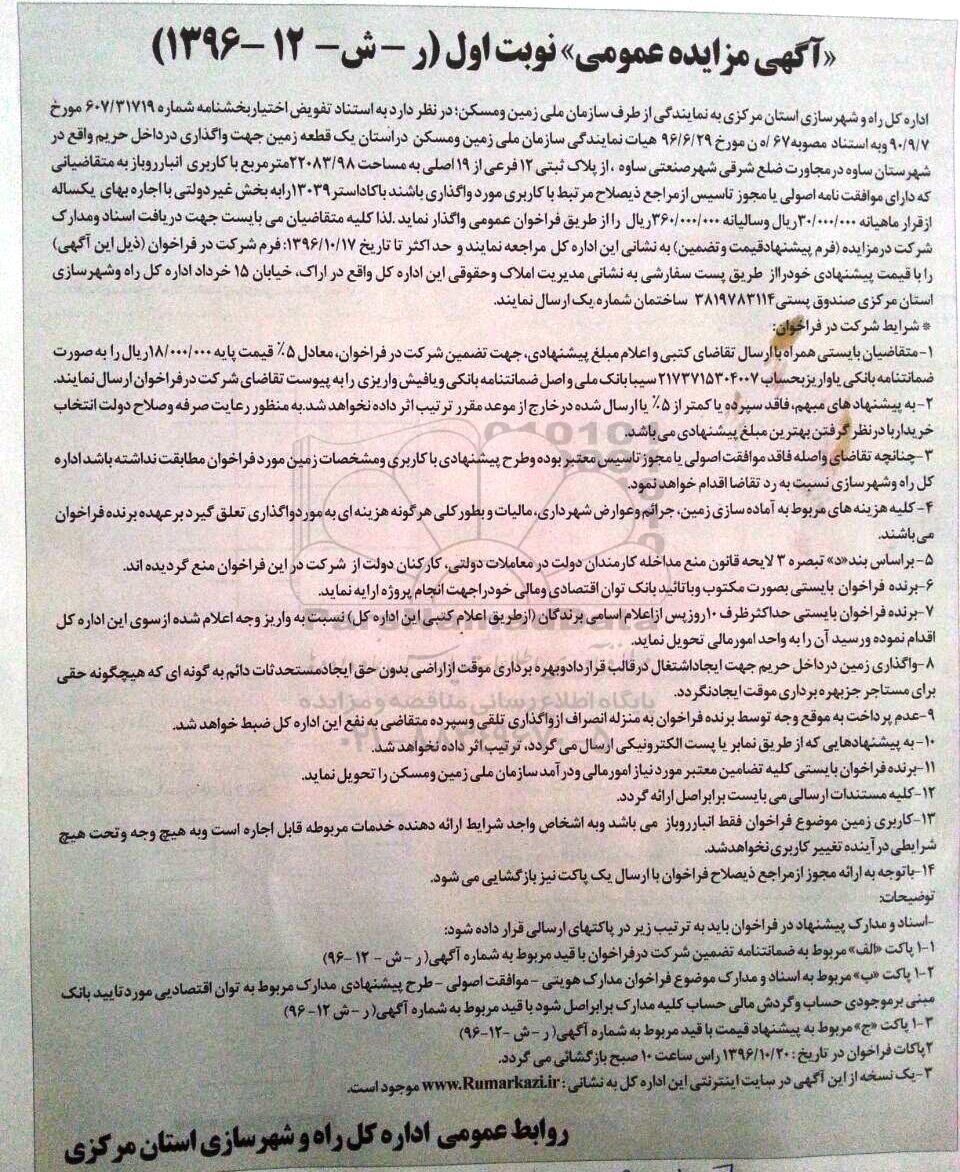 «آگهی مزایده عمومی» نوبت اول (ر – ش– ۱۲ –۱۳۹۶)
اداره کل راه و شهرسازی استان مرکزی به نمایندگی از طرف سازمان ملی زمین ومسکن؛ در نظر دارد به استناد تفویض اختیار بخشنامه شماره ۶۰۷/۳۱۷۱۹ مورخ
۹۰/۹/۷ وبه استناد مصوبه ۶۷/ه ن مورخ ۹۶/۶/۲۹ هیات نمایندگی سازمان ملی زمین ومسکن دراستان یک قطعه زمین جهت واگذاری درداخل حریم واقع در
شهرستان ساوه درمجاورت ضلع شرقی شهرصنعتی ساوه ، از پلاک ثبتی ۱۲ فرعی از ۱۹ اصلی به مساحت ۲۲۰۸۳/۹۸مترمربع با کاربری انبارروباز به متقاضیانی
که دارای موافقت نامه اصولی یا مجوز تاسیس ازمراجع ذیصلاح مرتبط با کاربری مورد واگذاری باشند باکاداستر ۱۳۰۳۹رابه بخش غیردولتی با اجاره بهای یکساله
ازقرار ماهیانه ۳۰/۰۰۰/۰۰۰ریال وسالیانه ۳۶۰/۰۰۰/۰۰۰ریال را از طریق فراخوان عمومی واگذار نماید .لذا کلیه متقاضیان می بایست جهت دریافت اسناد ومدارک
شرکت درمزایده (فرم پیشنهادقیمت و تضمین) به نشانی این اداره کل مراجعه نمایند و حداکثر تا تاریخ ۱۳۹۶/۱۰/۱۷؛ فرم شرکت در فراخوان (ذیل این آگهی)
را با قیمت پیشنهادی خودرااز طریق پست سفارشی به نشانی مدیریت املاک وحقوقی این اداره کل واقع در اراک، خیابان ۱۵ خرداد اداره کل راه وشهرسازی
استان مرکزی صندوق پستی ۳۸۱۹۷۸۳۱۱۴ ساختمان شماره یک ارسال نمایند.
* شرایط شرکت در فراخوان:
۱-متقاضیان بایستی همراه با ارسال تقاضای کتبی و اعلام مبلغ پیشنهادی، جهت تضمین شرکت در فراخوان، معادل ۵٪ قیمت پایه ۱۸/۰۰۰/۰۰۰ریال را به صورت
ضمانتنامه بانکی یاواریزبحساب ۲۱۷۳۷۱۵۳۰۴۰۰۷ سیبا بانک ملی و اصل ضمانتنامه بانکی ویافیش واریزی را به پیوست تقاضای شرکت درفراخوان ارسال نمایند.
۲-به پیشنهادهای مبهم، فاقد سپرده یا کمتر از ۵٪ یا ارسال شده درخارج از موعد مقرر ترتیب اثر داده نخواهد شد.به منظور رعایت صرفه وصلاح دولت انتخاب
خریداربا درنظر گرفتن بهترین مبلغ پیشنهادی می باشد.
۳-چنانچه تقاضای واصله فاقد موافقت اصولی یا مجوز تاسیس معتبر بوده وطرح پیشنهادی با کاربری ومشخصات زمین مورد فراخوان مطابقت نداشته باشد اداره
کل راه وشهرسازی نسبت به رد تقاضا اقدام خواهد نمود.
۴-کلیه هزینه های مربوط به آماده سازی زمین، جرائم وعوارض شهرداری، مالیات و بطورکلی هرگونه هزینه ای به موردواگذاری تعلق گیرد برعهده برنده فراخوان
می باشند.
۵-براساس بند«د» تبصره ۳ لایحه قانون منع مداخله کارمندان دولت در معاملات دولتی، کارکنان دولت از شرکت در این فراخوان منع گردیده اند.
۶-برنده فراخوان بایستی بصورت مکتوب وباتائید بانک توان اقتصادی ومالی خودراجهت انجام پروژه ارایه نماید.
۷-برنده فراخوان بایستی حداکثرظرف ۱۰ روزپس ازاعلام اسامی برندگان (ازطریق اعلام کتبی این اداره کل) نسبت به واریز وجه اعلام شده ازسوی این اداره کل
اقدام نموده ورسید آن را به واحد امورمالی تحویل نماید.
۸-واگذاری زمین درداخل حریم جهت ایجاداشتغال درقالب قراردادوبهره برداری موقت ازاراضی بدون حق ایجادمستحدثات دائم به گونه ای که هیچگونه حقی
برای مستاجر جزبهره برداری موقت ایجادنگردد.
۹-عدم پرداخت به موقع وجه توسط برنده فراخوان به منزله انصراف ازواگذاری تلقی وسپرده متقاضی به نفع این اداره کل ضبط خواهد شد.
۱۰-به پیشنهادهایی که از طریق نمابر یا پست الکترونیکی ارسال می گردد، ترتیب اثر داده نخواهد شد.
۱۱-برنده فراخوان بایستی کلیه تضامین معتبر مورد نیاز امورمالی ودرآمد سازمان ملی زمین ومسکن را تحویل نماید.
۱۲-کلیه مستندات ارسالی می بایست برابراصل ارائه گردد.
۱۳-کاربری زمین موضوع فراخوان فقط انبارروباز می باشد وبه اشخاص واجد شرایط ارائه دهنده خدمات مربوطه قابل اجاره است وبه هیچ وجه وتحت هیچ
شرایطی درآینده تغییر کاربری نخواهدشد.
۱۴-باتوجه به ارائه مجوز ازمراجع ذیصلاح فراخوان با ارسال یک پاکت نیز بازگشایی می شود.
توضیحات:
-اسناد و مدارک پیشنهاد در فراخوان باید به ترتیب زیر در پاکتهای ارسالی قرار داده شود:
۱-۱ پاکت «الف» مربوط به ضمانتنامه تضمین شرکت درفراخوان با قید مربوط به شماره آگهی( ر – ش – ۱۲ –۹۶)
۱-۲ پاکت «ب» مربوط به اسناد و مدارک موضوع فراخوان مدارک هویتی – موافقت اصولی – طرح پیشنهادی مدارک مربوط به توان اقتصادیی مورد تایید بانک
مبنی برموجودی حساب وگردش مالی حساب کلیه مدارک برابراصل شود با قید مربوط به شماره آگهی( ر – ش ۱۲– ۹۶)
۱-۳ پاکت «ج» مربوط به پیشنهاد قیمت با قید مربوط به شماره آگهی( ر – ش –۱۲–۹۶)
۲پاکات فراخوان در تاریخ : ۱۳۹۶/۱۰/۲۰ راس ساعت ۱۰ صبح بازگشائی می گردد.
۳-یک نسخه از این آگهی در سایت اینترنتی این اداره کل به نشانی : www.Rumarkazi.ir موجود است.
روابط عمومی اداره کل راه و شهرسازی استان مرکزی